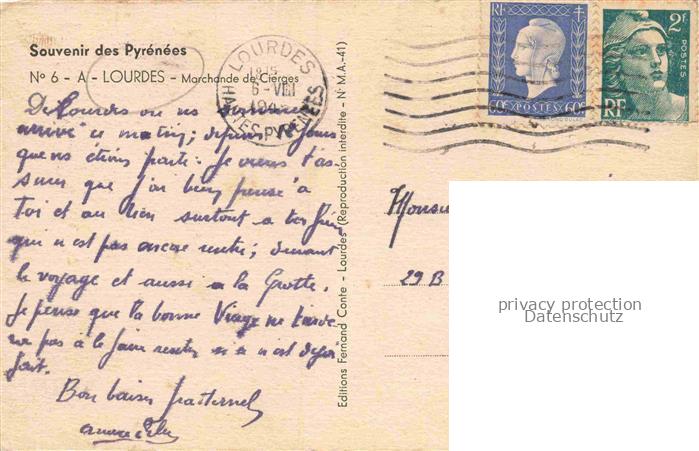 Souvenir des Pyrénées
Nº 6 - A - LOURDES - Marchande de Cierges
De Lourdes ou ns sommes
arrivé ce matin; depuis jours
que ns étions parti. Je viens t'as-
surer que j'ai bien pensé à
toi et au tien surtout a ton frère
qui n'est pas encore rentré; durant
le voyage et aussi a la Grotte.
Je pense que la bonne Vierge ne tarde-
ra pas à le faire rentrer si n'est déjà
fait.
Bon baiser fraternel
Editions Fernand Conte - Lourdes (Reproduction interdite - Nº M.A.-41)
LOURDES
6-VIII
HAUTES-PYRÉNÉES
RF
60c POSTES 60c
2F
POSTES
RF
Monsieu
29 B
privacy protection
Datenschutz